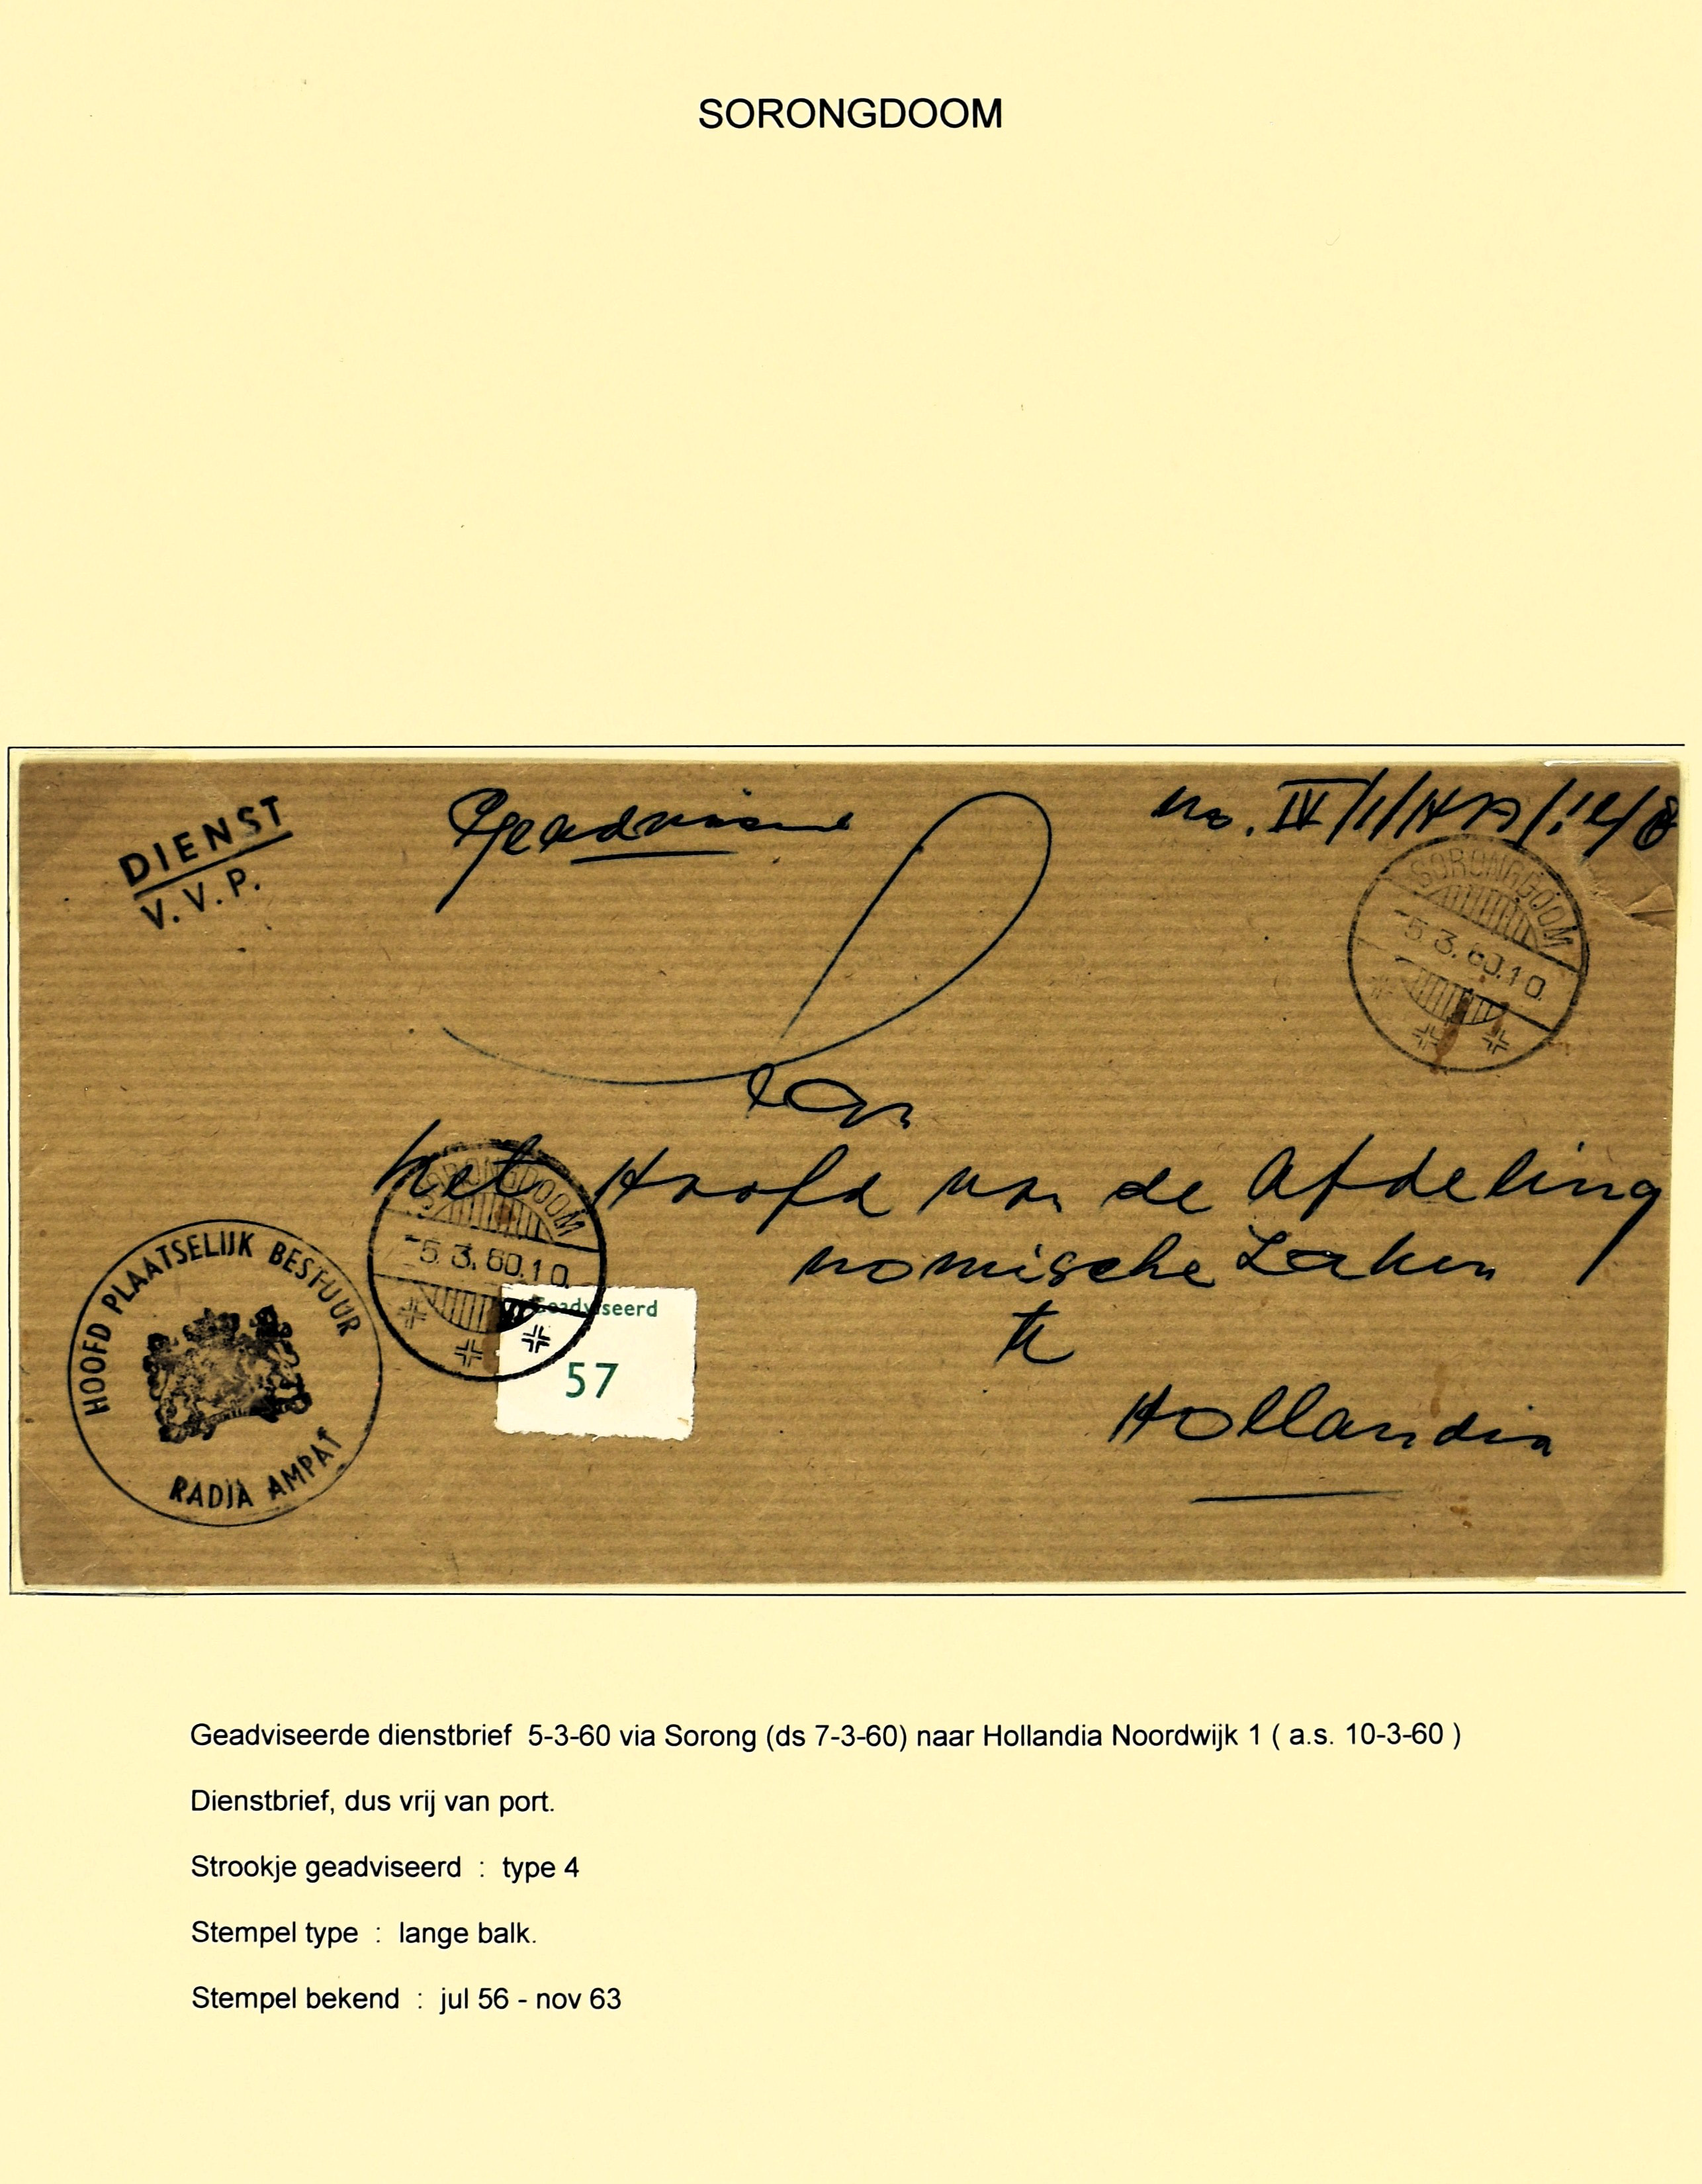 SORONGDOOM
DIENST
V.V.P.
Geadviseerd
No. IV/1/
SORONGDOOM
-5.3.60.10.
Aan
het Hoofd van de Afdeling
nomische Zaken
te
Hollandia
SORONGDOOM
-5.3.60.10.
Geadviseerd
57
HOOFD PLAATSELIJK BESTUUR
RADJA AMPAT
Geadviseerde dienstbrief 5-3-60 via Sorong (ds 7-3-60) naar Hollandia Noordwijk 1 ( a.s. 10-3-60 )
Dienstbrief, dus vrij van port.
Strookje geadviseerd : type 4
Stempel type : lange balk.
Stempel bekend : jul 56 - nov 63